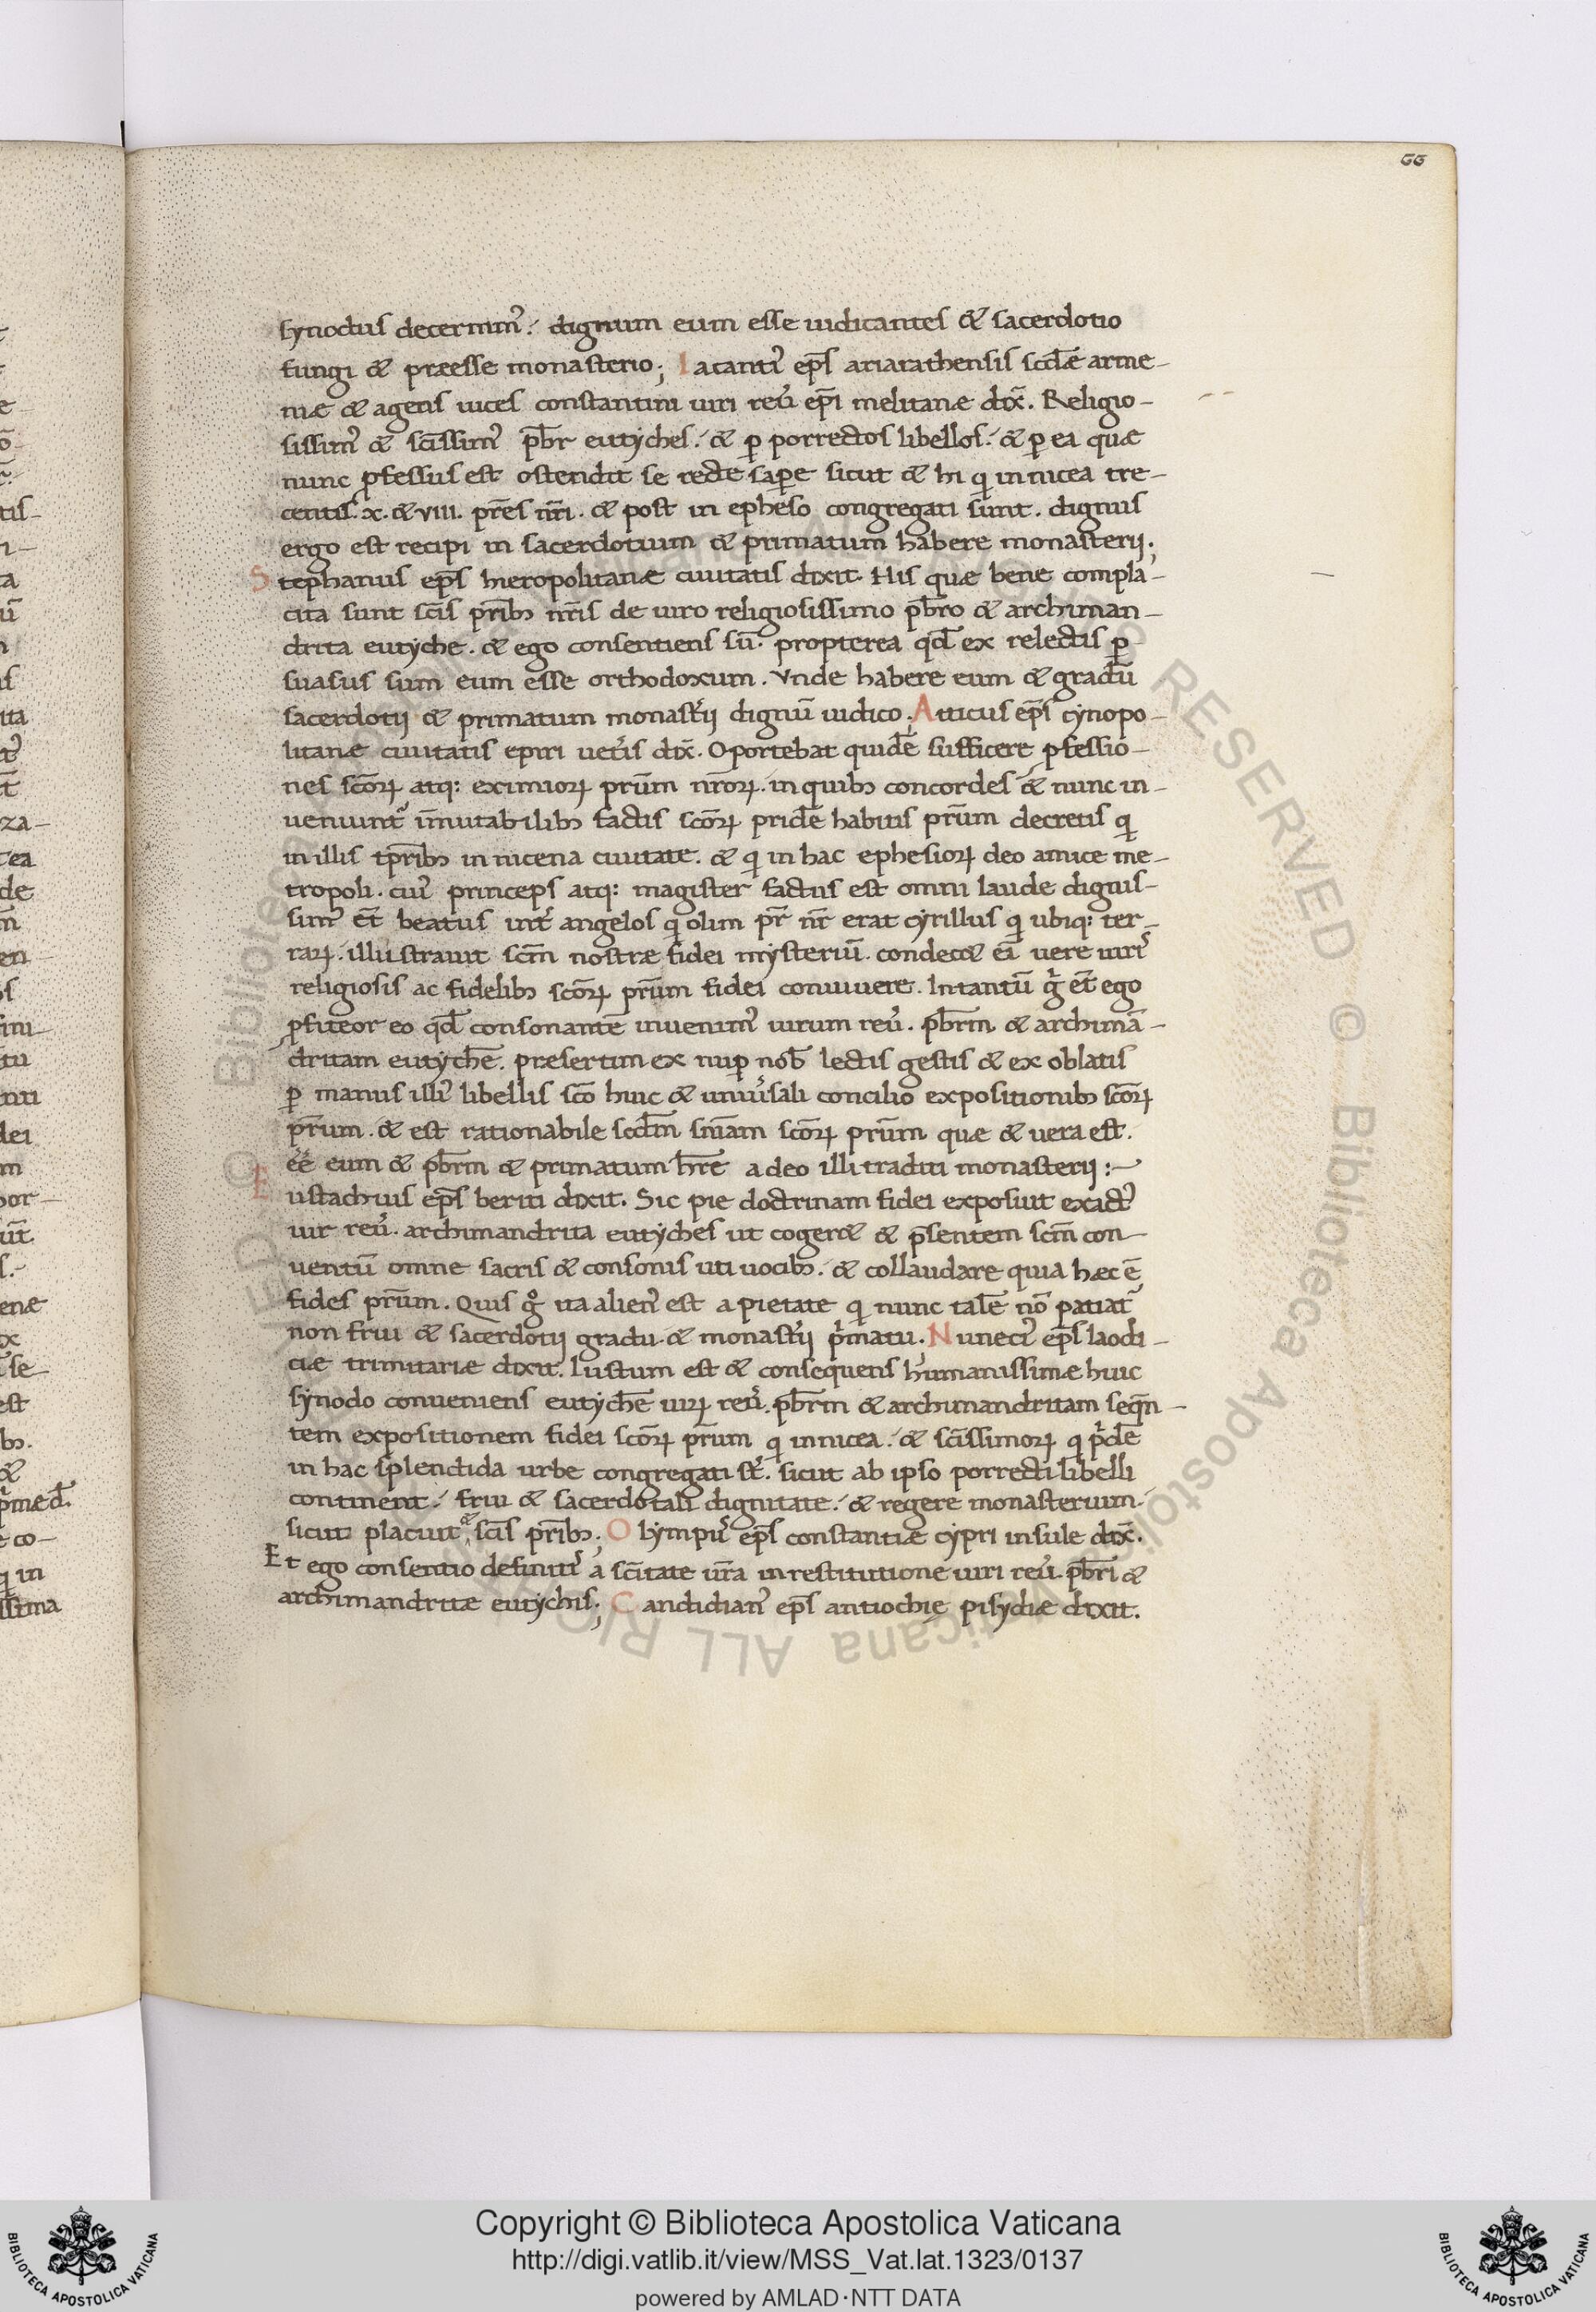 66
synodus decernim᷒. dignum eum esse iudicantes & sacerdotio
fungi & præesse monasterio; Iacanti᷒ ep̄s ariarathensis scd̄æ arme-
niæ & agens uices constantini uiri reu᷒ ep̄i melitanæ dix̄. Religio-
sissim᷒ & sc̄issim᷒ pb̄r eutyches. & ꝑ porrectos libellos. & ꝑ ea quæ
nunc ꝓfessus est ostendit se recte saꝑe sicut & hi q̣ in nicea tre-
centis. x. & viii. pr̄es nr̄i. & post in epheso congregati sunt. dignus
ergo est recipi in sacerdotium & primatum habere monasterij.
Stephanus ep̄s hieropolitanæ ciuitatis dixit. His quæ bene compla-
cita sunt sc̄is pr̄ibꝫ nr̄is de uiro religiosissimo pb̄ro & archiman-
drita eutyche. & ego consentiens sū. propterea qd̄ ex relectis ꝑ
suasus sum eum esse orthodoxum. Vnde habere eum & gradū
sacerdotij & primatum monast᷒ij dignū iudico. Atticus ep̄s cynopo-
litanæ ciuitatis epiri uet᷒is dix̄. Oportebat quidē sufficere ꝓfessio-
nes sc̄oꝝ atq: eximioꝝ pr̄um nr̄oꝝ. in quibꝫ concordes & nunc in-
ueniunt᷒ īmutabilibꝫ factis sc̄oꝝ pridē habitis pr̄um decretis q̣
in illis tp̄ribꝫ in nicena ciuitate. & q̣ in hac ephesioꝝ deo amice me-
tropoli. cui᷒ princeps atq: magister factus est omni laude dignis-
sim᷒ et̄ beatus int᷒ angelos q̣ olim pr̄ nr̄ erat cyrillus q̣ ubiq: ter-
raꝝ. illustrauit sc̄m nostræ fidei mysteriū. condec& ēi uere uiri᷒
religiosis ac fidelibꝫ sc̄oꝝ pr̄um fidei conuiuere. Intantū g᷒ et̄ ego
ꝓfiteor eo qd̄ consonantē inuenim᷒ uirum reu᷒. pb̄rm & archimā-
dritam eutychē. præsertim ex nuꝑ nob̄ lectis gestis & ex oblatis
ꝑ manus illi᷒ libellis sc̄o huic & uniu᷒sali concilio expositionibꝫ sc̄oꝝ
pr̄um. & est rationabile scd̄m sn̄iam sc̄oꝝ pr̄um quæ & uera est.
eē eum & pb̄rm & primatum hr̄e a deo illi traditi monasterij:
Eustachius ep̄s beriti dixit. Sic pie doctrinam fidei exposuit
uir reu᷒. archimandrita eutyches ut coger& & p̄sentem sc̄m con-
uentū omne sacris & consonis uti uocibꝫ. & collaudare quia hæc ē
fides pr̄um. Quis g° ita alien᷒ est a pietate q̣ nunc talē nō patiat᷒
non frui & sacerdotij gradu. & monast᷒ij p᷒matu. Nuneci᷒ ep̄s laodi-
ciæ trimitariæ dixit. Iustum est & consequens humanissimæ huic
synodo conueniens eutychē uiꝝ reu᷒. pb̄rm & archimandritam seq̄n-
tem expositionem fidei sc̄oꝝ pr̄um q̣ in nicea. & sc̄issimoꝝ q̣ p᷒dē
in hac splendida urbe congregati st᷒. sicut ab ipso porrecti libelli
continent. frui & sacerdotali dignitate. & regere monasterium.
sicuti placuit & sc̄is pr̄ibꝫ; Olympi᷒ ep̄s constantiæ cypri insule dix̄.
Et ego consentio definiti᷒ a sc̄itate ur̄a in restitutione uiri reu᷒. pb̄ri &
archimandritæ eutychis; Candidian᷒ ep̄s antiochię pisydiæ dixit.
Copyright © Biblioteca Apostolica Vaticana
http://digi.vatlib.it/view/MSS_Vat.lat.1323/0137
powered by AMLAD·NTT DATA